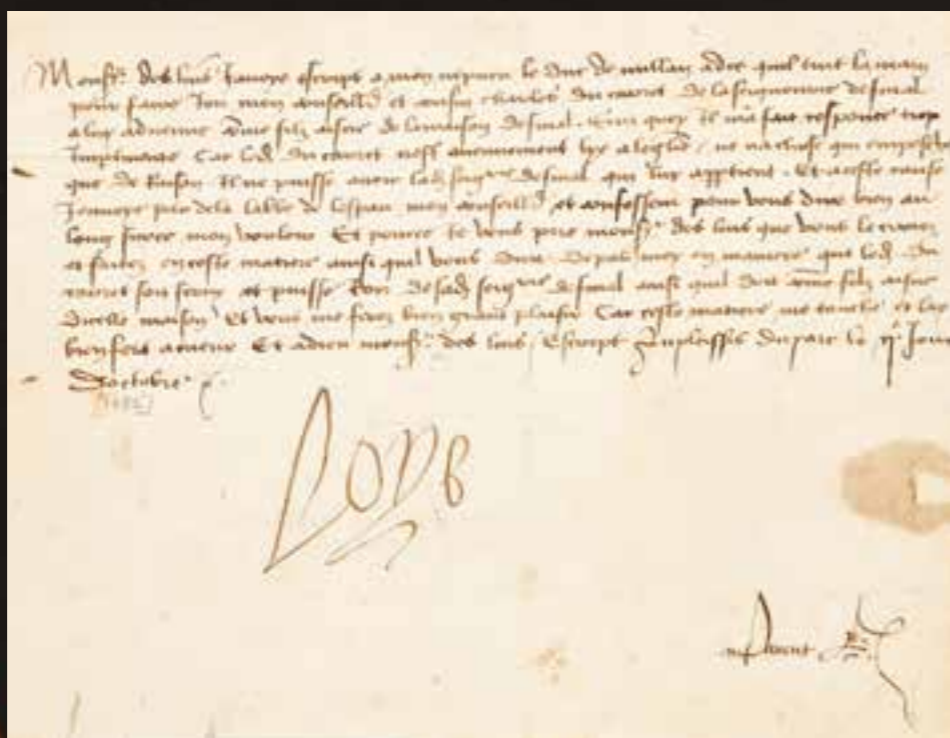 Monsr. des luis Jauoye escript a mon nepueu le duc de millan adce quil tint la main
pour faire Joir mon conseillr et cousin charles du carret de la seigneurie de final
a luy aduenue come filz aisne de la maison de final. Sur quoy Il ma fait response trop
Car led. du carret nest aucunement a leglise, ne na chose qui empesche
que de Raison Il ne puisse auoir lad. seigrie de final qui luy apptient. Et a ceste cause
Jenuoye pardela labbe de mon conseillr et confesseur pour vous dire bien au
long mon vouloir Et pource Je vous prie monsr des luis que vous le croiez
et faictes en ceste matiere ainsi quil vous dira Depar moy en maniere que led. du
carret et puisse Joir de sad. seigrie de final ainsi quil doit come filz aisne
dicelle maison Et vous me ferez bien grant plaisir Car ceste matiere me touche et lay
bien fort a cueur Et adieu monsr. des luis, Escript au plessis du parc le Jour
Doctobre
Loys
Parent